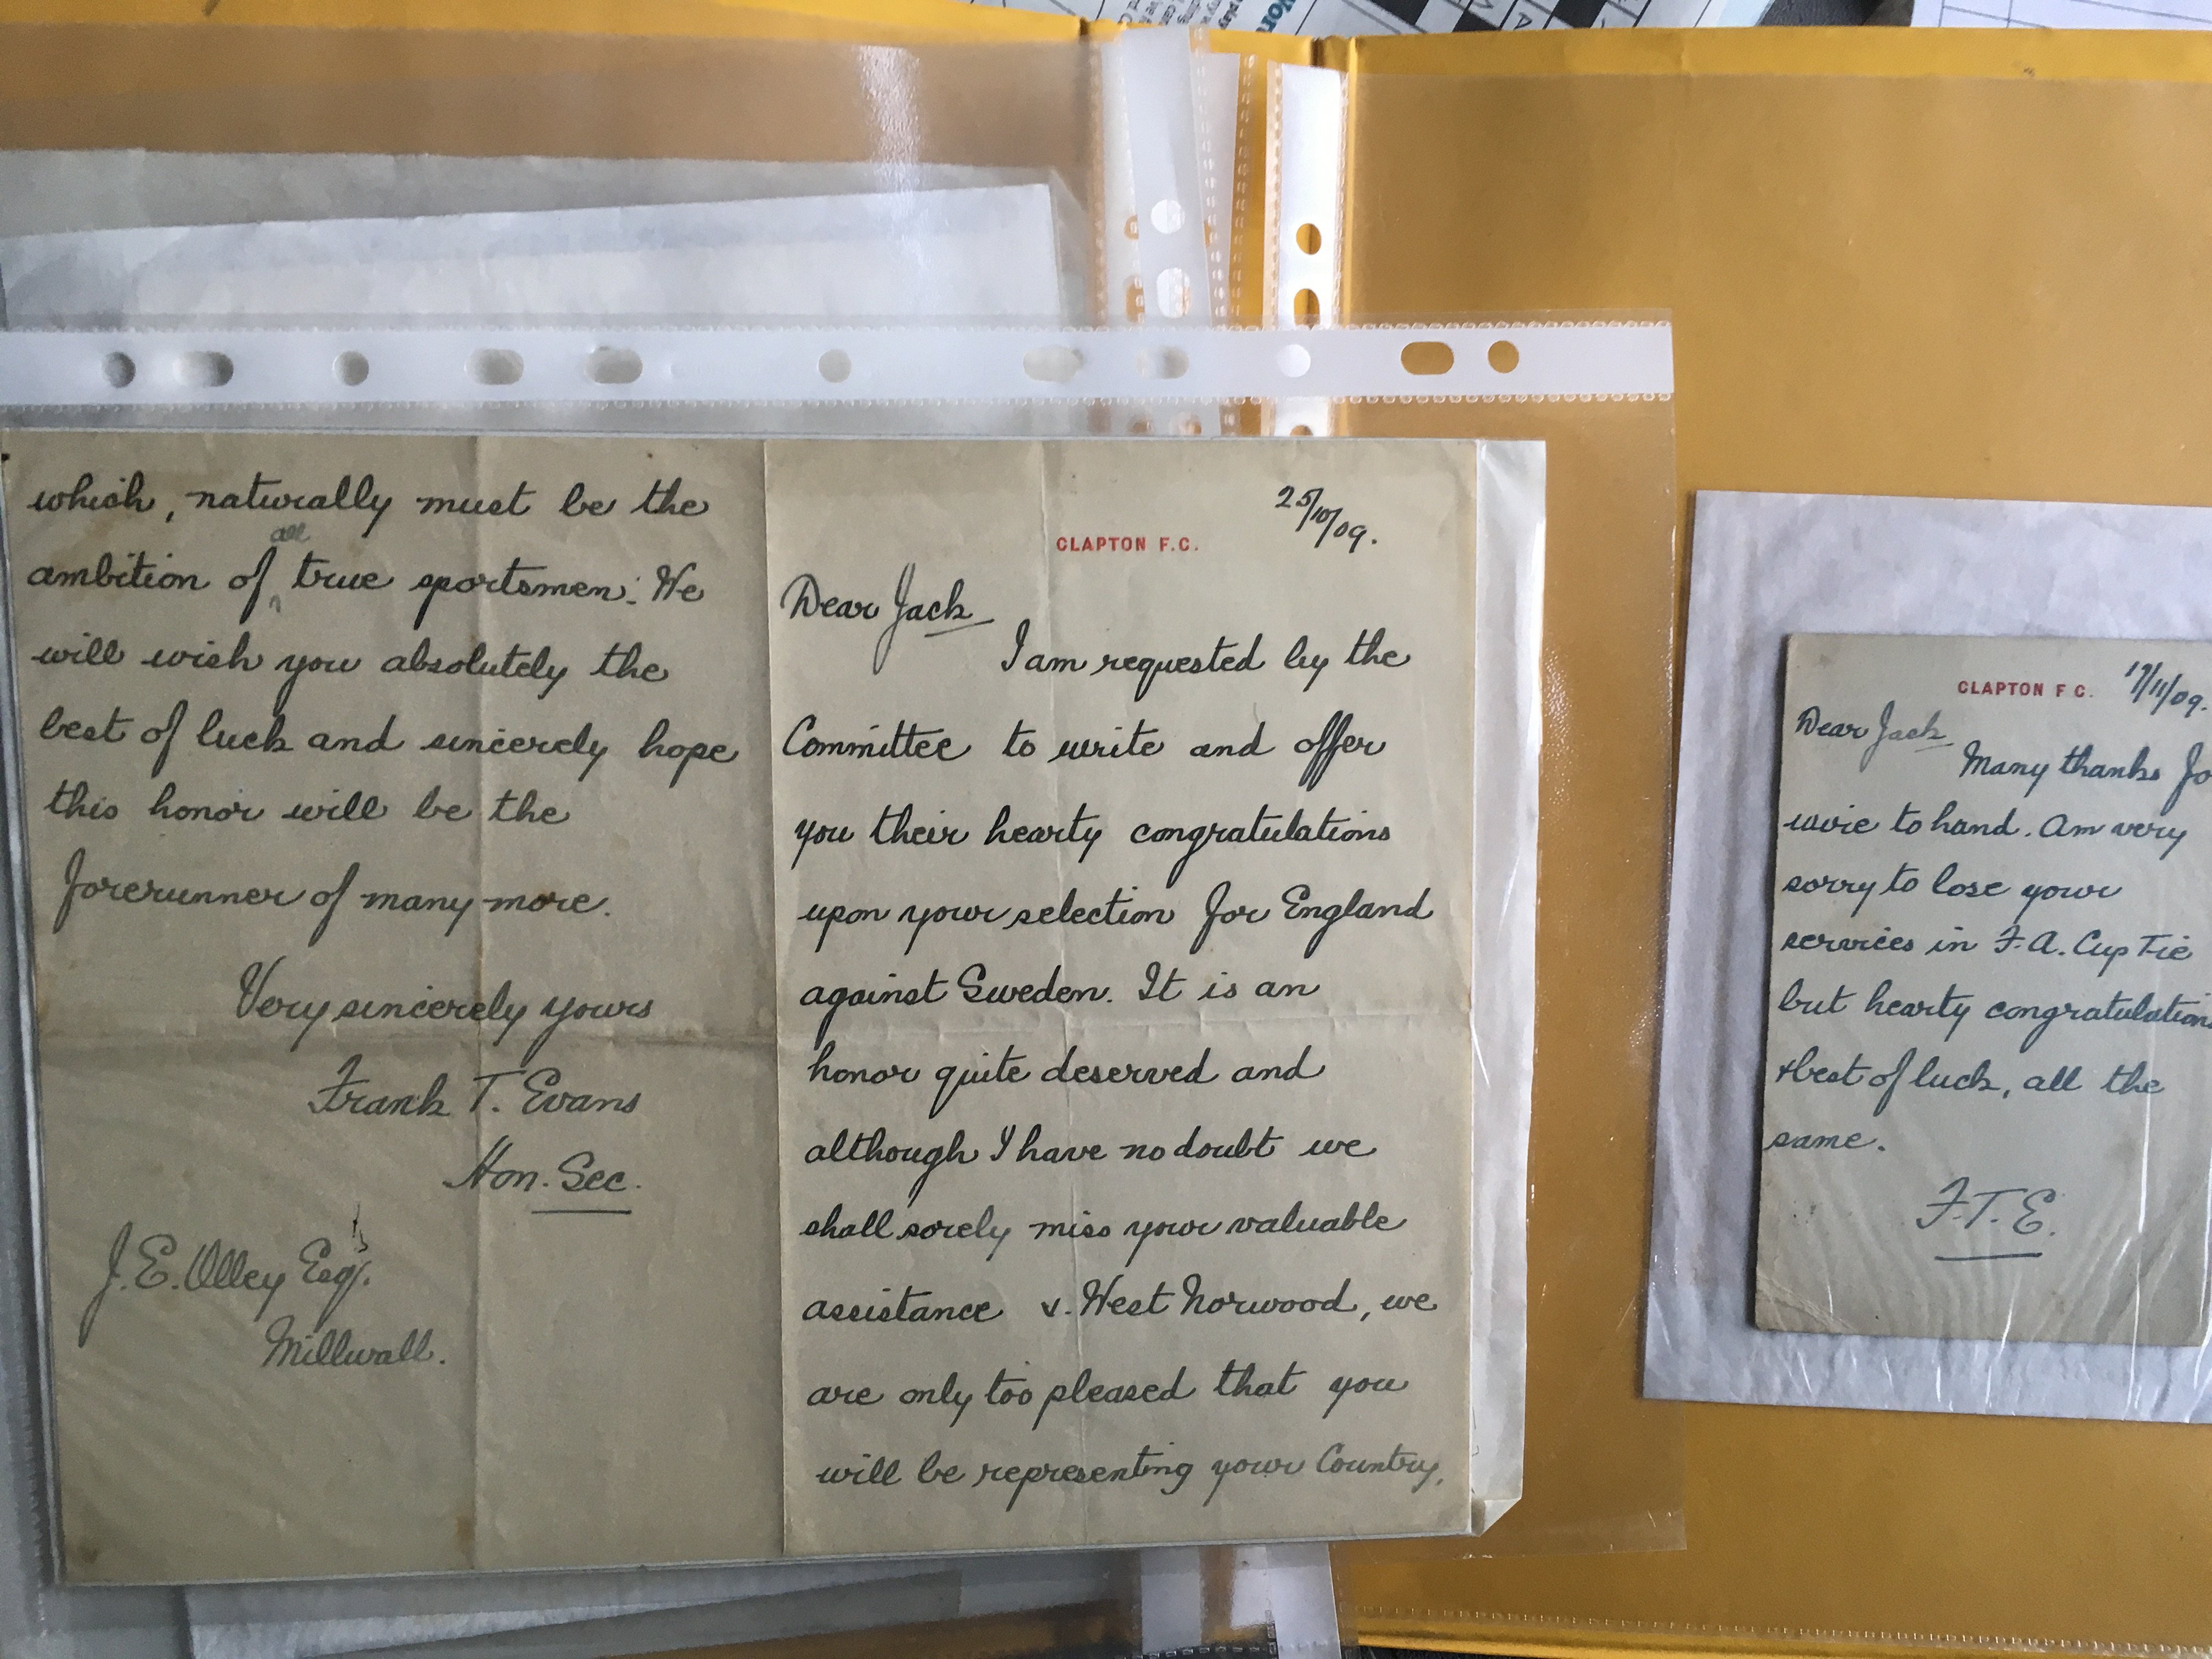 25/10/09.
CLAPTON F.C.
Dear Jack
I am requested by the
Committee to write and offer
you their hearty congratulations
upon your selection for England
against Sweden. It is an
honor quite deserved and
although I have no doubt we
shall sorely miss your valuable
assistance v. West Norwood, we
are only too pleased that you
will be representing your Country,
which, naturally must be the
all
ambition of true sportsmen. We
will wish you absolutely the
best of luck and sincerely hope
this honor will be the
forerunner of many more.
Very sincerely yours
Frank T. Evans
Hon. Sec.
J. E. Olley Esq.
Millwall.
CLAPTON F C. 17/11/09.
Dear Jack
Many thanks fo
wire to hand. Am very
sorry to lose your
services in F.A. Cup Tie
but hearty congratulation
& best of luck, all the
same.
F.T.E.